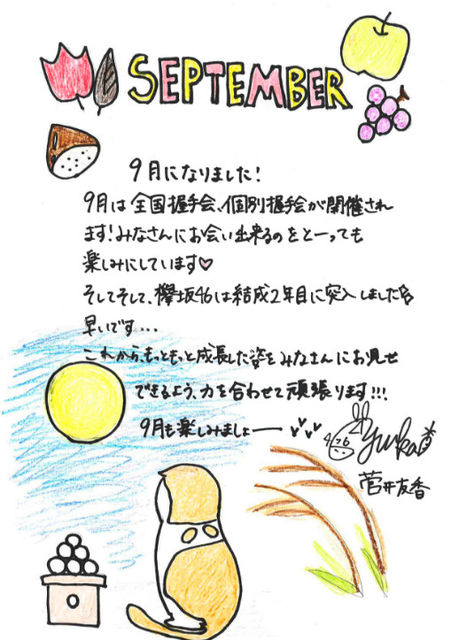 SEPTEMBER
9月になりました!
9月は全国握手会、個別握手会が開催され
ます!みなさんにお会い出来るのをとーっても
楽しみにしています♡
そしてそして、欅坂46は結成2年目に突入しました
早いです...
これから、もっともっと成長した姿をみなさんにお見せ
できるよう、力を合わせて頑張ります!!!
9月も楽しみましょーー
Yuuka
菅井友香